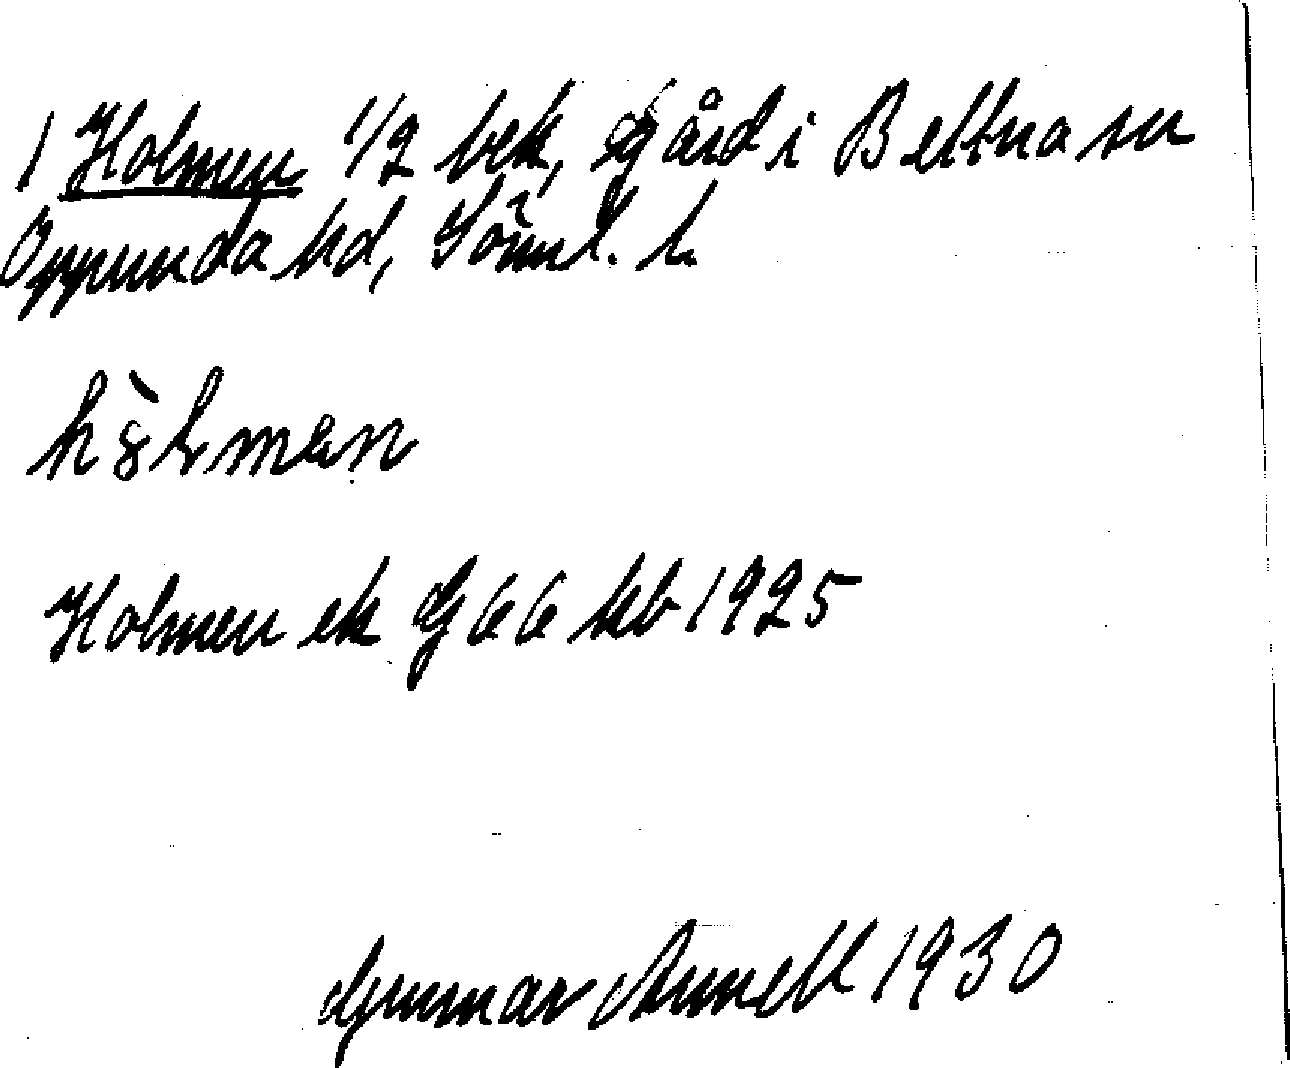 1 Holmen 1/2 bek, gård i Bettna sn
Oppunda hd, Söml. l.
hò̤lmen
Holmen ek G 66 kb 1925
Gunnar Annell 1930